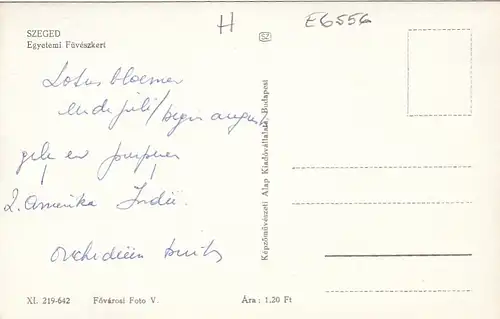 H
E6556
SZEGED
Egyetemi Füvészkert
SZ
Lotus bloemen
eude juli/begin august
gele en purperen
Z. Amerika Indië.
orchideeën
Képzőművészeti Alap Kiadóvállalata, Budapest
XI. 219-642 Fővárosi Foto V. Ára: 1,20 Ft